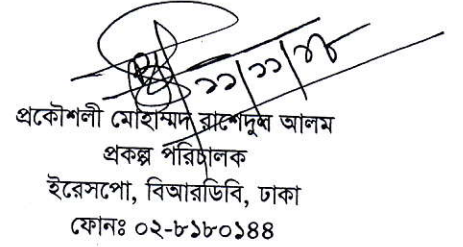 ১১/১১/১৮
প্রকৌশলী মোহাম্মদ রাশেদুল আলম
প্রকল্প পরিচালক
ইরেসপো, বিআরডিবি, ঢাকা
ফোনঃ ০২-৮১৮০১৪৪